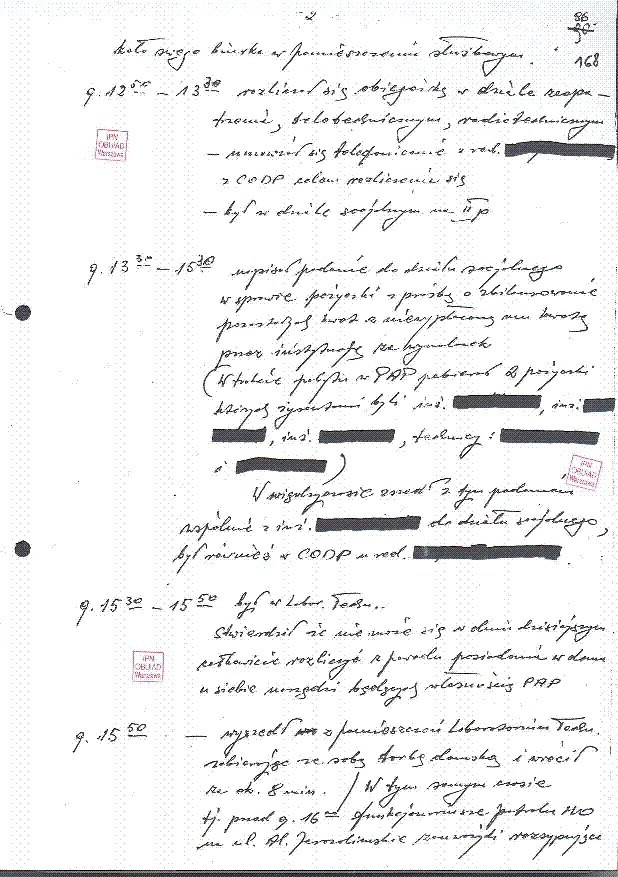 2
86
168
koło swego biurka w pomieszczeniu służbowym.
g. 12 – 13 30 rozliczał się obiegówką w dziale zaopa-
trzenia, teletechnicznym, radiotechnicznym
IPN
OBUiAD
Warszawa
– umówił się telefonicznie z red.
z CODP celem rozliczenia się
– był w dziale socjalnym na II p
g. 13 30 – 15 30 napisał podanie do działu socjalnego
w sprawie pożyczki z prośbą o zbilansowanie
pozostałych kwot z niewypłaconą mu kwotą
przez instytucję za wynalazek
(W trakcie pobytu w PAP pobierał 2 pożyczki
których żyrantami byli inż. , inż.
, inż. , technicy:
i )
IPN
OBUiAD
Warszawa
W międzyczasie zszedł z tym podaniem
wspólnie z inż. do działu socjalnego,
był również w CODP u red. .
g. 15 30 – 15 50 był w Labor. Techn..
Stwierdził że nie może się w dniu dzisiejszym
całkowicie rozliczyć z powodu posiadania w domu
u siebie urządzeń będących własnością PAP
IPN
OBUiAD
Warszawa
g. 15 50 – wyszedł z pomieszczeń Laboratorium Techn.
zabierając ze sobą torbę damską i wrócił
za ok. 8 min. / W tym samym czasie
tj. przed g. 16 funkcjonariusze patrolu MO
na ul. Al. Jerozolimskie zauważyli rozsypujące